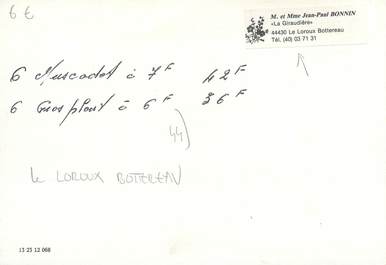 6 €
M. et Mme Jean-Paul BONNIN
«La Giraudière»
44430 Le Loroux Bottereau
Tél. (40) 03 71 31
6 Muscadet à 7F 42F
6 Gros plant à 6F 36F
44)
le LOROUX BOTTEREAU
13 25 12 068